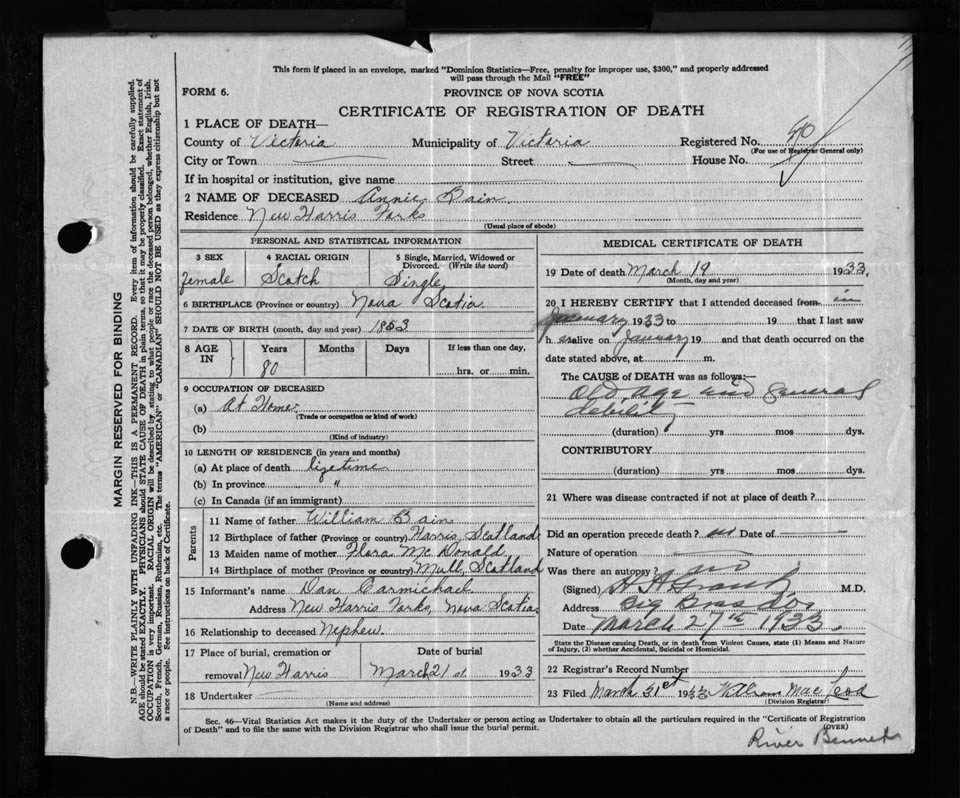 This form if placed in an envelope, marked "Dominion Statistics—Free, penalty for improper use, $300," and properly addressed
will pass through the Mail "FREE"
FORM 6.
PROVINCE OF NOVA SCOTIA
CERTIFICATE OF REGISTRATION OF DEATH
1 PLACE OF DEATH—
County of Victoria Municipality of Victoria Registered No. 40
(For use of Registrar General only)
City or Town Street House No.
If in hospital or institution, give name
2 NAME OF DECEASED Annie Bain
Residence New Harris Forks
(Usual place of abode)
PERSONAL AND STATISTICAL INFORMATION
3 SEX 4 RACIAL ORIGIN 5 Single, Married, Widowed or
Divorced. (Write the word)
female Scotch Single
6 BIRTHPLACE (Province or country) Nova Scotia
7 DATE OF BIRTH (month, day and year) 1853
8 AGE IN Years Months Days If less than one day,
80 hrs. or min.
9 OCCUPATION OF DECEASED
(a) At Home
(Trade or occupation or kind of work)
(b)
(Kind of industry)
10 LENGTH OF RESIDENCE (in years and months)
(a) At place of death lifetime
(b) In province "
(c) In Canada (if an immigrant)
Parents
11 Name of father William Bain
12 Birthplace of father (Province or country) Harris, Scotland
13 Maiden name of mother Flora McDonald
14 Birthplace of mother (Province or country) Mull, Scotland
15 Informant's name Dan Carmichael
Address New Harris Forks, Nova Scotia
16 Relationship to deceased Nephew.
17 Place of burial, cremation or Date of burial
removal New Harris March 21st. 1933
18 Undertaker
(Name and address)
MEDICAL CERTIFICATE OF DEATH
19 Date of death March 19 1933,
(Month, day and year)
20 I HEREBY CERTIFY that I attended deceased from in
January 1933 to 19 that I last saw
h er alive on January 19 and that death occurred on the
date stated above, at m.
The CAUSE of DEATH was as follows:—
Old age and general
debility
(duration) yrs mos dys.
CONTRIBUTORY
(duration) yrs. mos dys.
21 Where was disease contracted if not at place of death?
Did an operation precede death? no Date of
Nature of operation
Was there an autopsy? no
(Signed) H A Grant M.D.
Address Big Bras d'or
Date March 27th 1933.
State the Disease causing Death, or in death from Violent Causes, state (1) Means and Nature
of Injury, (2) whether Accidental, Suicidal or Homicidal.
22 Registrar's Record Number
23 Filed March 31st 1933 William MacLeod
(Division Registrar)
Sec. 46—Vital Statistics Act makes it the duty of the Undertaker or person acting as Undertaker to obtain all the particulars required in the "Certificate of Registration
of Death" and to file the same with the Division Registrar who shall issue the burial permit.
(OVER)
River Bennet
MARGIN RESERVED FOR BINDING
N.B.—WRITE PLAINLY WITH UNFADING INK—THIS IS A PERMANENT RECORD. Every item of information should be carefully supplied.
AGE should be stated EXACTLY. PHYSICIANS should STATE CAUSE OF DEATH in plain terms, so that it may be properly classified. Exact statement of
OCCUPATION is very important. RACIAL ORIGIN will be described by stating to what people or race the deceased person belonged, whether English, Irish,
Scotch, French, German, Russian, Ruthenian, etc. The terms "AMERICAN" or "CANADIAN" SHOULD NOT BE USED as they express citizenship but not
a race or people. See instructions on back of Certificate.